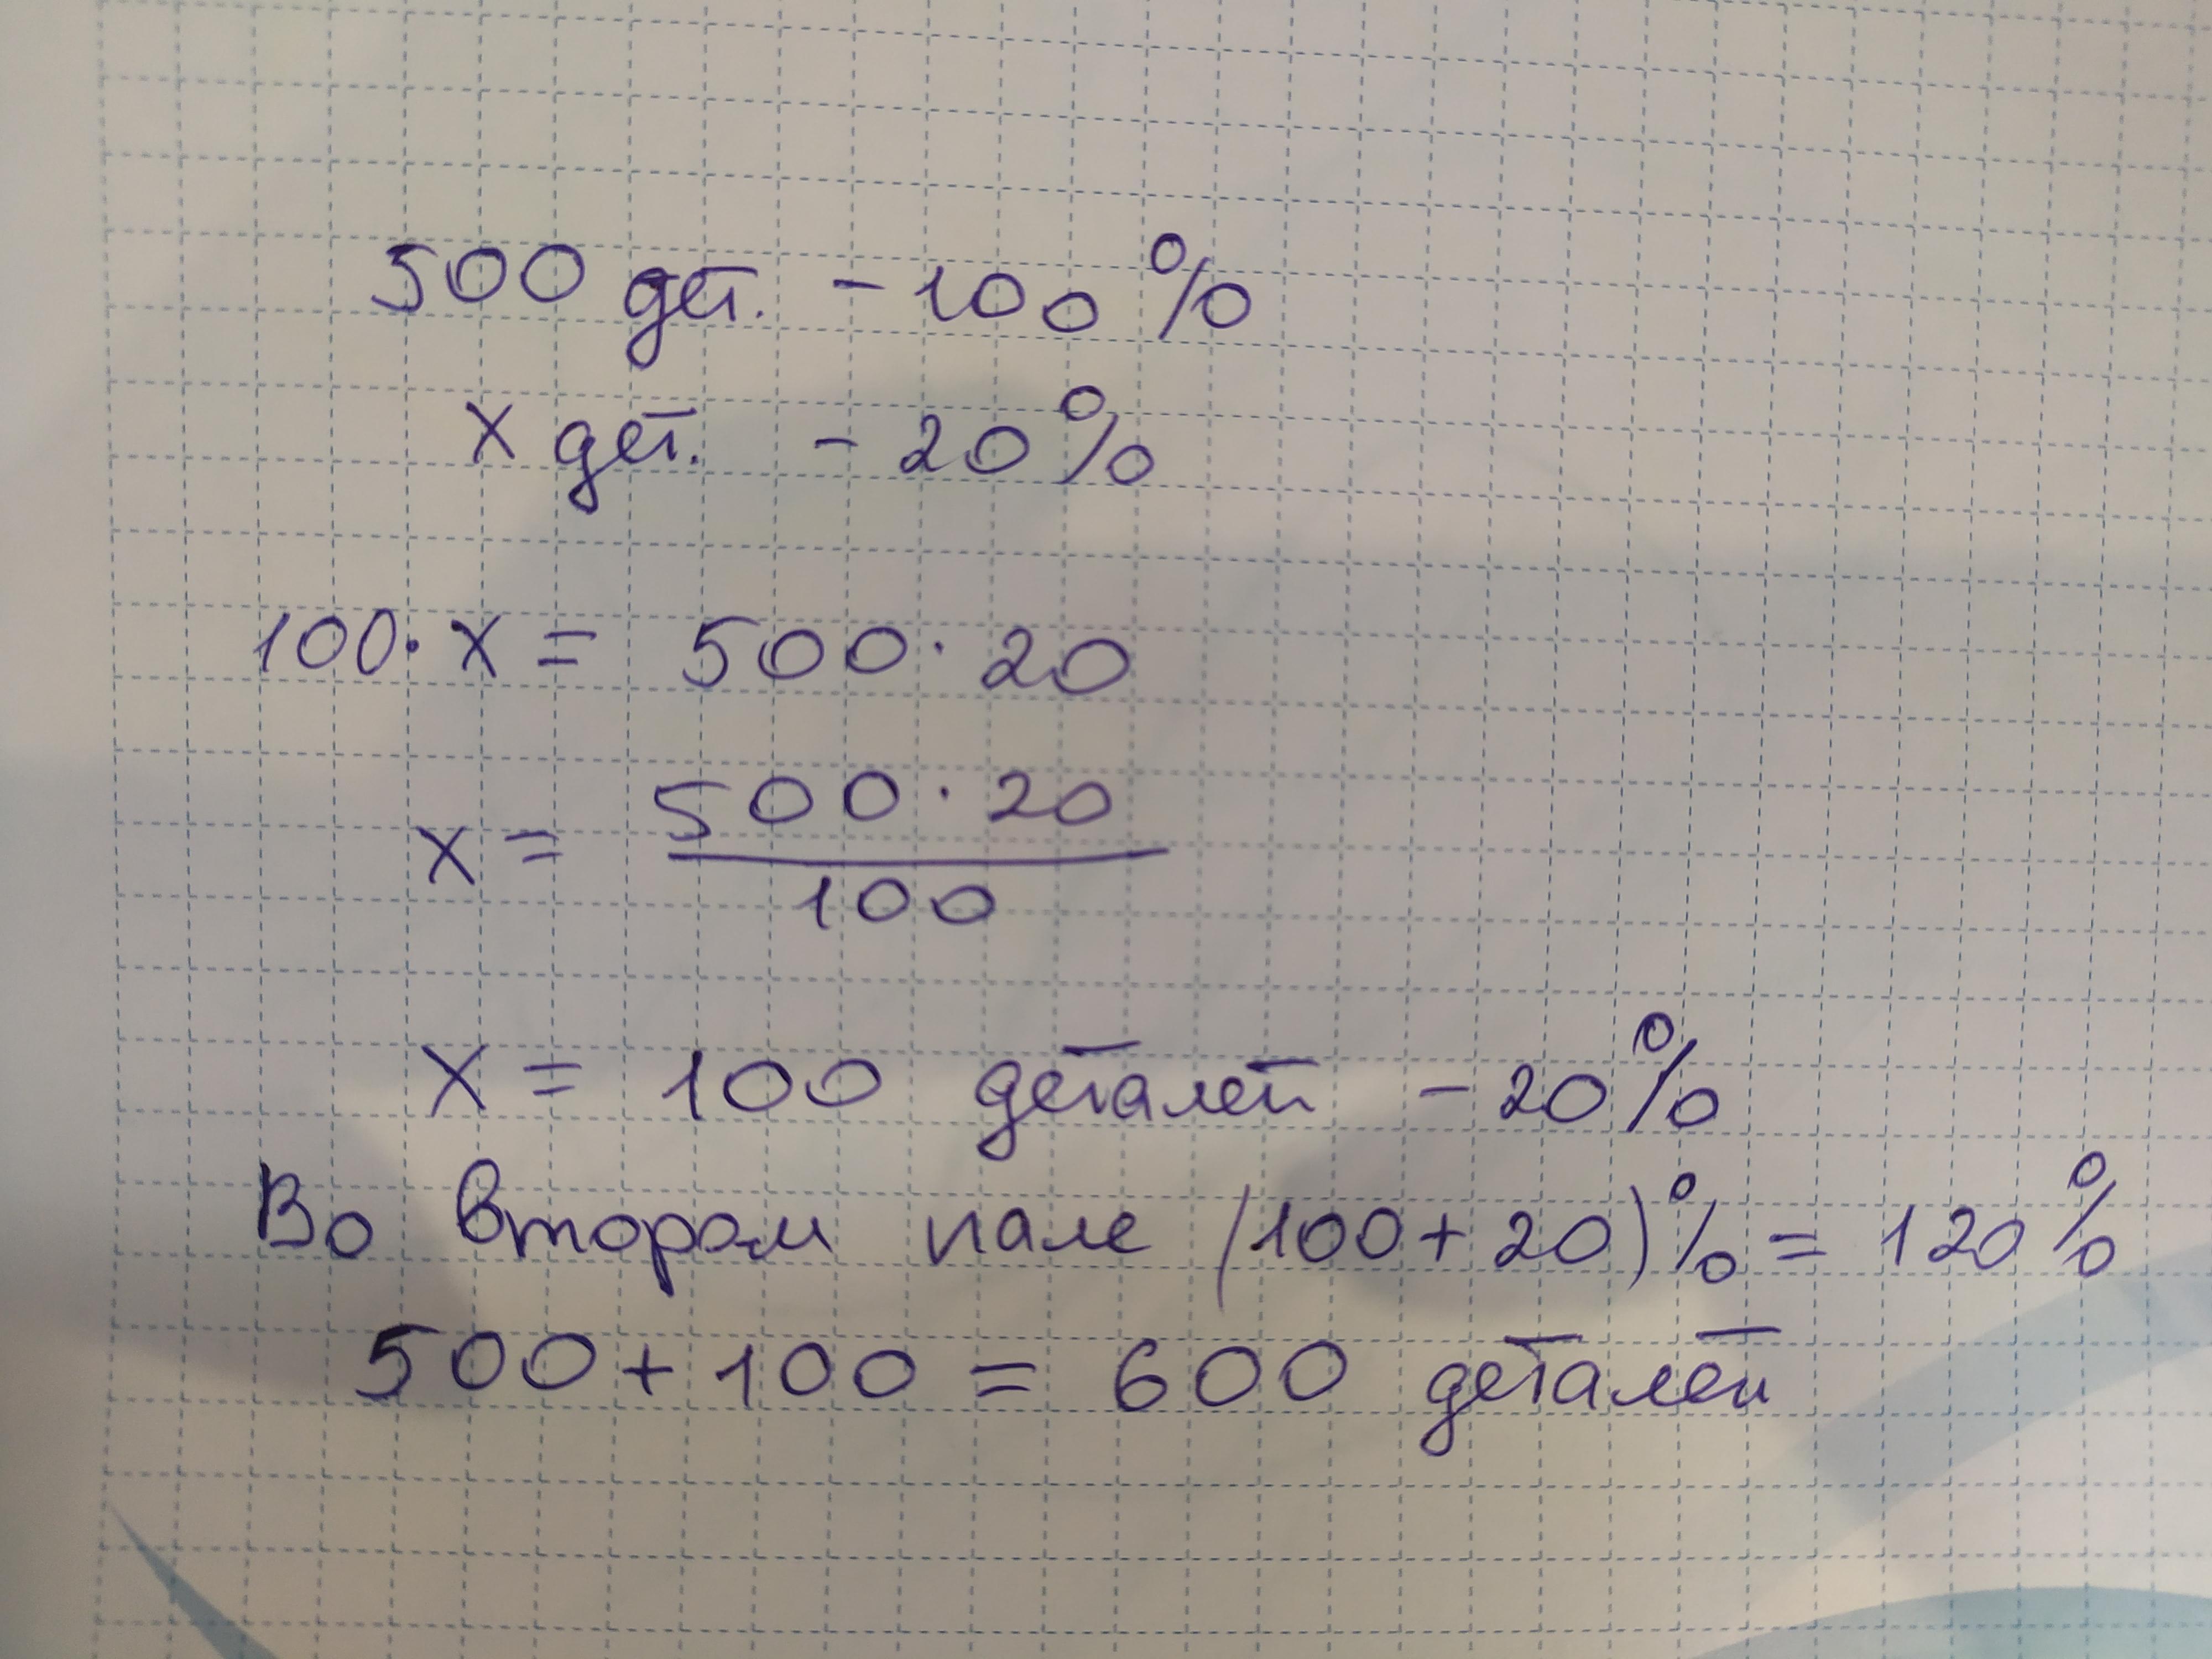 500 дет. - 100 %
x дет. - 20 %
100 · x = 500 · 20
x = 500 · 20 / 100
x = 100 деталей - 20 %
Во втором цеале (100 + 20) % = 120 %
500 + 100 = 600 деталей